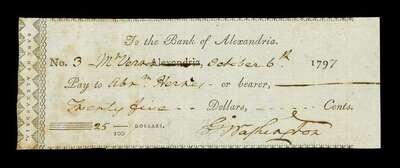 To the Bank of Alexandria.
No. 3 Mt Vernon Alexandria, October 6th 1797
Pay to or bearer,
Twenty five Dollars, Cents.
25 / 100 DOLLARS,
G:Washington